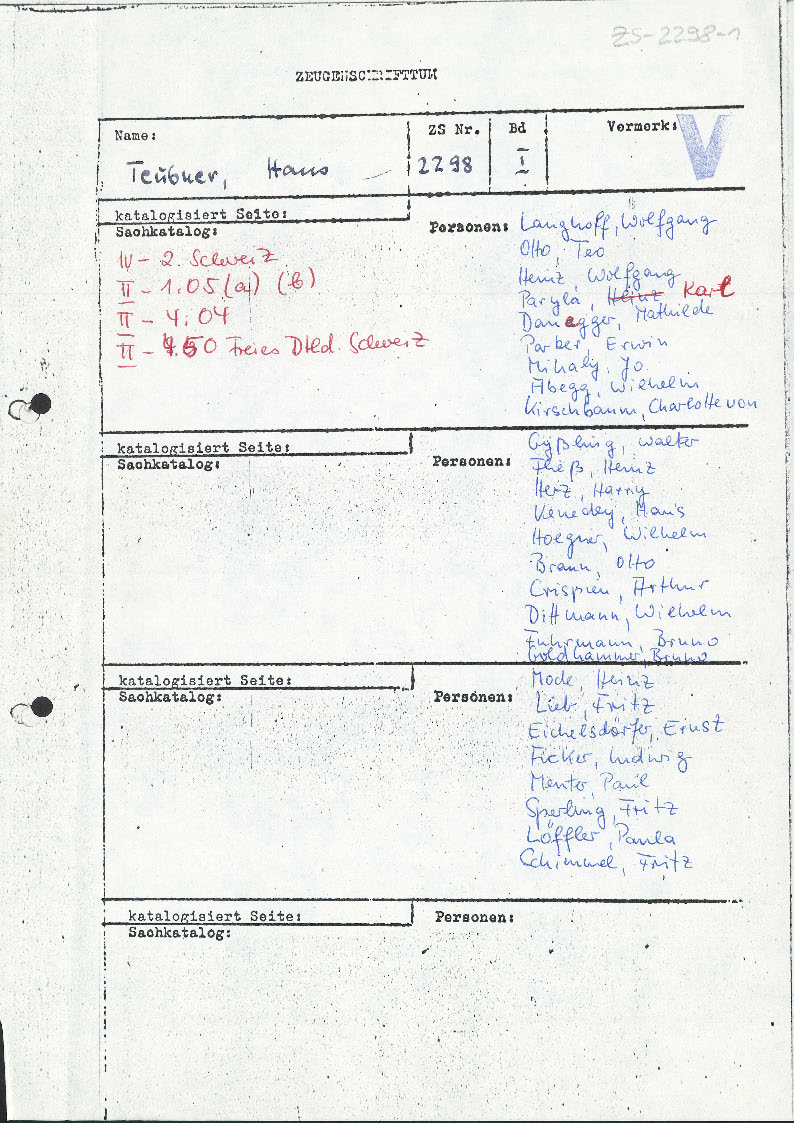 ZS-2298-1
ZEUGENSCHRIFTTUM
Name: ZS Nr. Bd Vermerk: V
Teubner, Hans 2298 I
katalogisiert Seite:
Sachkatalog:
IV - 2. Schweiz
II - 1.05 (a) (b)
II - 4.04
II - 4.50 Freies Dtld. Schweiz
Personen: Langhoff, Wolfgang
Otto, Teo
Heinz, Wolfgang
Paryla, Heinz Karl
Danegger, Mathilde
Parker, Erwin
Mihaly, Jo
Abegg, Wilhelm
Kirschbaum, Charlotte von
katalogisiert Seite:
Sachkatalog:
Personen: Gyßling, Walter
Fließ, Heinz
Herz, Harry
Venedey, Hans
Hoegner, Wilhelm
Braun, Otto
Crispien, Arthur
Dittmann, Wilhelm
Fuhrmann, Bruno
Goldhammer, Bruno
katalogisiert Seite:
Sachkatalog:
Personen: Mode, Heinz
Lieb, Fritz
Eichelsdörfer, Ernst
Ficker, Ludwig
Mento, Paul
Sperling, Fritz
Löffler, Paula
Schimmel, Fritz
katalogisiert Seite:
Sachkatalog:
Personen: